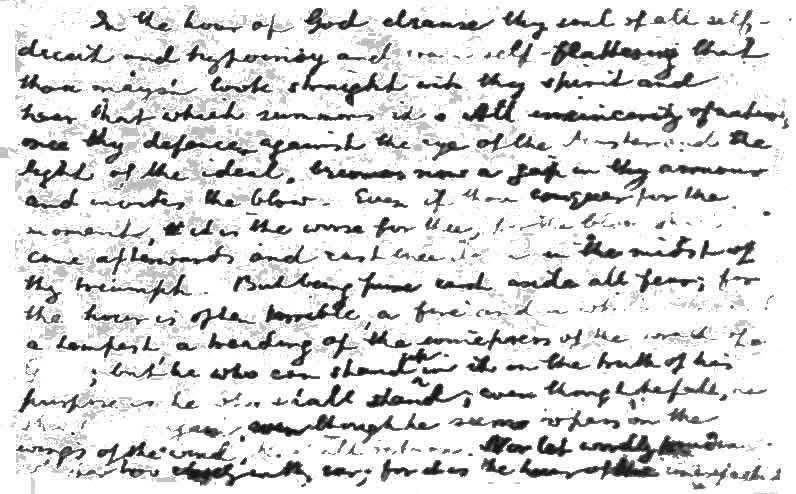 In the hour of God cleanse thy soul of all self-
deceit and hypocrisy and vain self-flattering that
thou mayst look straight into thy spirit and
hear that which summons it. All insincerity of nature,
once thy defence against the eye of the Master and the
light of the ideal, becomes now a gap in thy armour
and invites the blow. Even if thou conquer for the
moment, it is the worse for thee, for the blow shall
come afterwards and cast thee down in the midst of
thy triumph. But being pure cast aside all fear; for
the hour is often terrible, a fire and a
a tempest, a treading of the winepress of the wrath of
; but he who can stand up in it on the truth of his
purpose is he who shall stand; even though he fall, he
; even though he seem to pass on the
wings of the wind, he shall return. Nor let worldly prudence
too closely in thy ear; for it is the hour of the unexpected